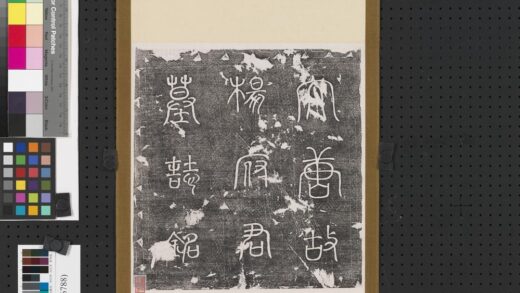 大唐故
楊府君
墓誌銘
Control Patches